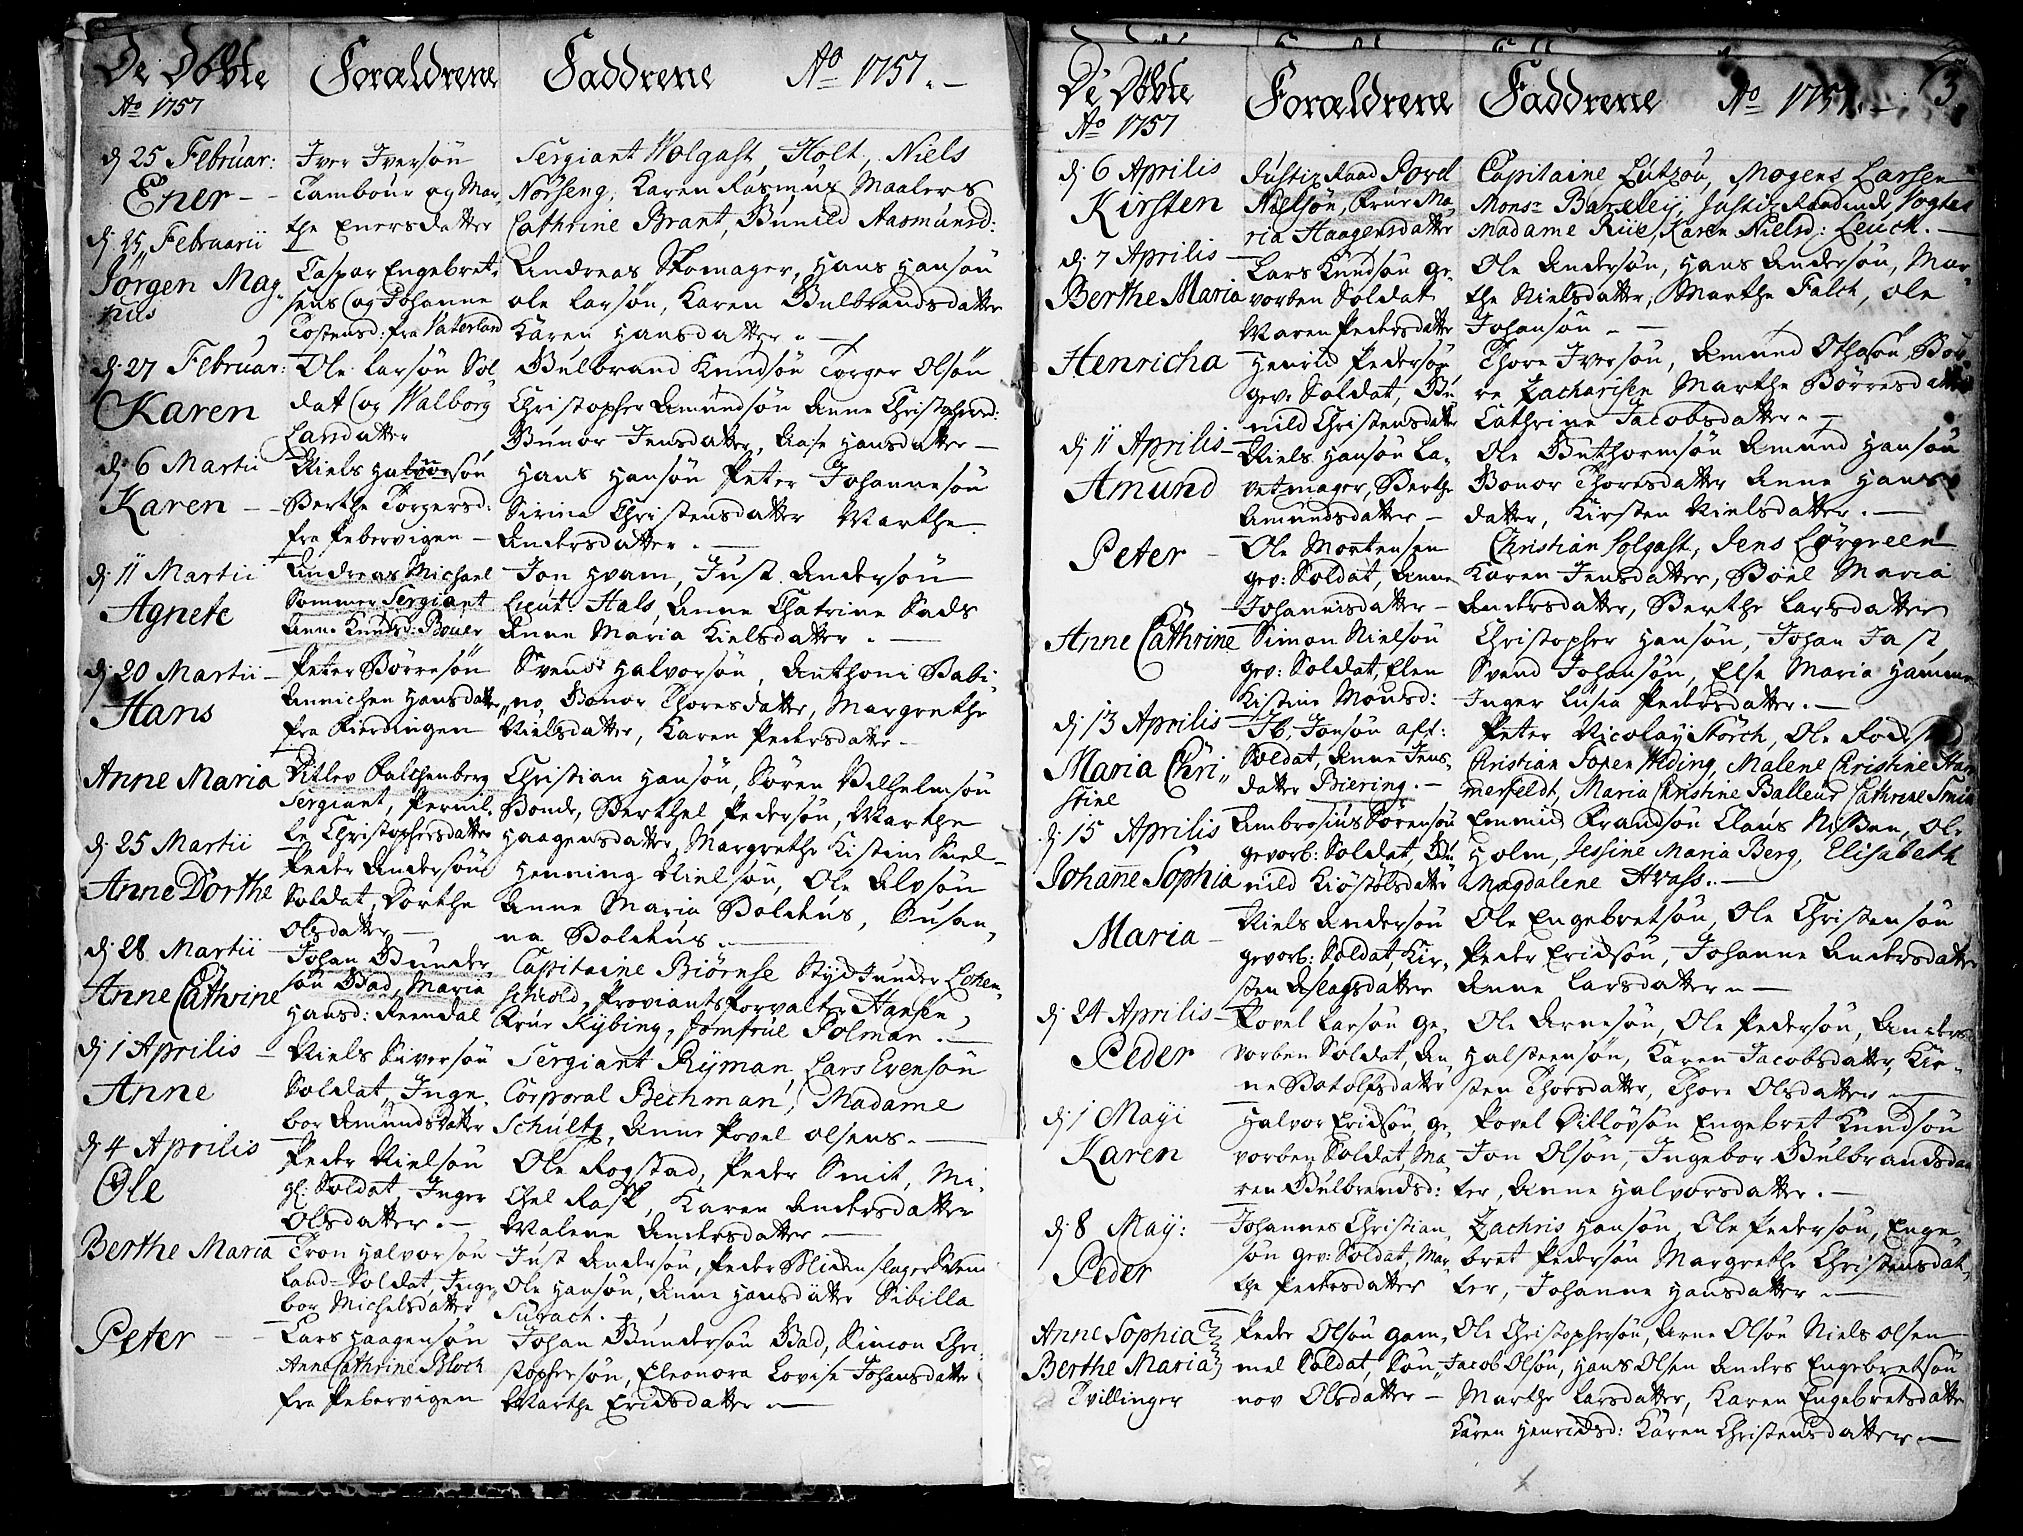 De Døbte
Ao 1757
Forældrene
Faddrene Ao 1757.
dj 25 Februar:
Ener
Iver Iversøn
Tambour og Mar,
the Enersdatter
Sergiant Wolgast, Holt, Niels
Norseng, Karen Rasmus Maalers
Cathrine Brant, Bunild Aasmunsd:
dj 25 Februarii
Jørgen Mag
nus
Caspar Engebret,
sens og Johanne
Tostensd: fra Vaterland
Andreas Skomager, Hans Hansøn
Ole Larsøn, Karen Gulbrandsdatter
Karen Hansdatter.
dj 27 Februar:
Karen
Ole Larsøn Sol
dat og Walborg
Larsdatter
Gulbrand Knudsøn Torger Olsøn
Christopher Amundsøn Anne Christophersd:
Gunor Jensdatter, Aase Hansdatter
dj 6 Martii
Karen
Niels Halvorsøn
Berthe Torgersd:
fra Pebervigen
Hans Hansøn Peter Johannesøn
Sirina Christensdatter Marthe
Andersdatter.
dj 11 Martii
Agnete
Andreas Michael
Sommer Sergiant
Anne Knudsd: Bouer
Jon Hvam, Just Andersøn
Lieut. Hals, Anne Chatrine Sads
Anne Maria Nielsdatter.
dj 20 Martii
Hans
Peter Børresøn
Annichen Hansdatter
fra Fierdingen
Svend Halvorsøn, Anthoni Babi,
no, Gonor Thoresdatter, Margrethe
Nielsdatter, Karen Pedersdatter
Anne Maria
Ditlev Falchenberg
Sergiant, Pernil,
le Christophersdatter
Christian Hansøn, Søren Vilhelmsøn
Bonde, Berthel Pedersøn, Marthe
Haagensdatter, Margrethe Kistine Snel
dj 25 Martii
Anne Dorthe
Peder Andersøn
Soldat, Dorthe
Olsdatter
Henning Nielsøn, Ole Alvsøn
Anne Maria Boldeus, Susan,
na Boldeus.
dj 28 Martii
Anne Cathrine
Johan Gunder
søn Bad, Maria
Hansd: Reendal
Capitaine Biørnse Stydjunder Lohen,
schiold, Proviantsforvalter Hansen,
Frue Nybing, Jomfrue Polman.
dj 1 Aprilis
Anne
Niels Siversøn
Soldat, Inge,
bor Amundsdatter
Sergiant Ryman, Lars Evensøn
Corporal Bechman, Madame
Schultz, Anne Povel Olsens.
dj 4 Aprilis
Ole
Peder Nielsøn
gl: Soldat, Inger
Olsdatter.
Ole Rogstad, Peder Smit, Mi,
chel Rask, Karen Andersdatter
Malene Andersdatter
Berthe Maria
Tron Halvorsøn
Land-Soldat, Inge,
bor Michelsdatter
Just Andersøn, Peder
Ole Hansøn, Anne Hansdatter Sibilla
Surach.
Peter
Lars Haagensøn
Anne Cathrine Bloch
fra Pebervigen
Johan Gundersøn Bad, Simon Chri,
stophersøn, Eleonora Lovise Johansdatter
Marthe Ericsdatter
De Døbte
Ao 1757
Forældrene
Faddrene Ao 1757.
3
dj 6 Aprilis
Kirsten
Justiz Raad Povel
Nielsøn, Frue Ma,
ria Haagensdatter
Capitaine Lutzou, Mogens Larsen
Monsr Barcley, Justiz Raadinde Vogtes
Madame Riie, Karen Nielsd: Leuch.
dj 7 Aprilis
Berthe Maria
Lars Knudsøn ge,
vorben Soldat
Maren Pedersdatter
Ole Andersøn, Hans Andersøn, Mar,
the Nielsdatter, Marthe Falch, Ole
Johansøn
Henricha
Henrid Pedersøn
gev: Soldat, Gu,
nild Christensdatter
Thore Iversøn, Amund Othesøn, Bør,
re Zacharisen Marthe Børresdatter
Cathrine Jacobsdatter.
dj 11 Aprilis
Amund
Niels Hansøn La,
vetmager, Berthe
Amundsdatter
Ole Guthormsøn Amund Hansøn
Gonor Thoresdatter Anne Hans,
datter, Kirsten Nielsdatter.
Peter
Ole Mortensen
gev: Soldat, Anne
Johannisdatter
Christian Solgast, Jens Lørgreen
Karen Jensdatter, Boel Maria
Andersdatter, Berthe Larsdatter
Anne Cathrine
Simon Nielsøn
gev: Soldat, Elen
Kistine Monsd:
Christopher Hansøn, Johan Fast,
Svend Johansøn, Else Maria Hammer
Inger Lusia Pedersdatter.
dj 13 Aprilis
Maria Chri,
stine
Ib, Jonsøn aft:
Soldat, Anne Jens,
datter Biering.
Peter Nicolay Storch, Ole Rodstad
Christian Soren Weding, Malene Christine Ham
merfeldt, Maria Christine Balleur Cathrene Smit
dj 15 Aprilis
Johane Sophia
Ambrosius Sørensøn
gevorb: Soldat, Gu,
nild Kiøstølsdatter
Emmid Frandsøn Claus Nissen, Ole
Holm, Jessine Maria Berg, Elisabeth
Magdalene Avass.
Maria
Niels Andersøn
gevorb: Soldat, Kir,
sten Aslagsdatter
Ole Engebretsøn, Ole Christensøn
Peder Eridsøn, Johanne Andersdatter
Anne Larsdatter
dj 24 Aprilis
Peder
Povel Larsøn ge,
vorben Soldat, An,
ne Botolfsdatter
Ole Arnesøn, Ole Pedersøn, Anders
Halsteensøn, Karen Jacobsdatter, Kir,
sten Thorsdatter, Thore Olsdatter
dj 1 Mayi
Karen
Halvor Eridsøn, ge,
vorben Soldat, Ma,
ren Gulbrandsd:
Povel Dilløvsøn Engebret Knudsøn
Jon Olsøn, Ingebor Gulbrandsdat
ter, Anne Halvorsdatter.
dj 8 May:
Peder
Johannes Christian,
søn gev: Soldat, Mar,
the Pedersdatter
Zachris Hansøn, Ole Pedersøn, Enge,
bret Pedersøn Margrethe Christensdat,
ter, Johanne Hansdatter
Anne Sophia
Berthe Maria
Tvillinger
Peder Olsøn gam,
mel Soldat, Søn,
nov Olsdatter
Ole Christophersøn, Arne Olsøn Niels Olsen
Jacob Olsøn, Hans Olsen Anders Engebretsøn
Marthe Larsdatter, Karen Engebretsdatter
Karen Henridsd: Karen Christensdatter